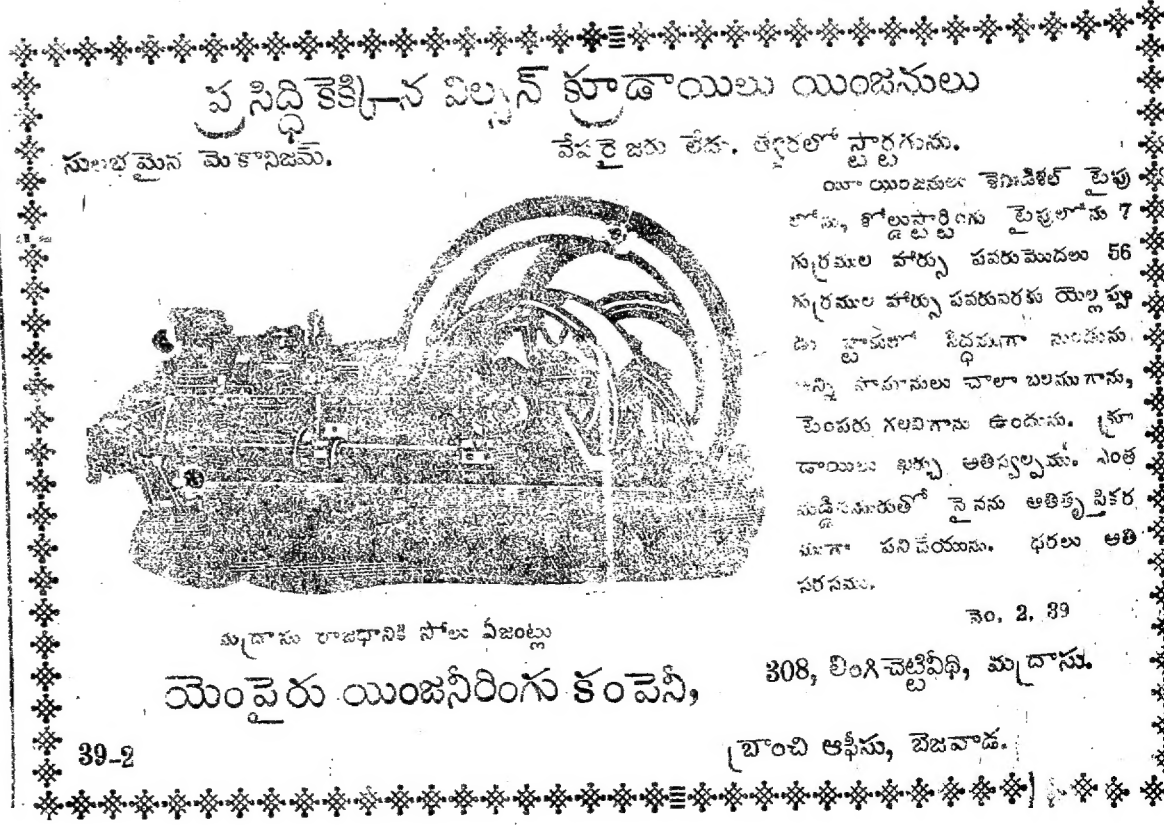 ప్రసిద్ధికెక్కిన విల్సన్ క్రూడాయిలు యింజనులు
సులభమైన మెకానిజమ్.
వేపరైజరు లేదు. త్వరలో స్టార్టగును.
యీ యింజనులు శెమిడీశల్ టైపు
లోను, కోల్డుస్టార్టింగు టైపులోను 7
గుర్రముల హార్సు పవరుమొదలు 56
గుర్రముల హార్సు పవరువరకు యెల్లప్పు
డు స్టాకులో సిద్ధముగా నుండును.
అన్ని సామానులు చాలా బలముగాను,
టెంపరు గలవిగాను ఉండును. క్రూ
డాయిలు ఖర్చు అతిస్వల్పము. ఎంత
మడ్డిచమురుతో నైనను అతితృప్తికర
ముగా పనిచేయును. ధరలు అతి
సరసము.
నెం. 2, 39
మద్రాసు రాజధానికి సోలు ఏజంట్లు
యెంపైరు యింజనీరింగు కంపెనీ,
308, లింగిచెట్టివీధి, మద్రాసు.
బ్రాంచి ఆఫీసు, బెజవాడ.
39-2